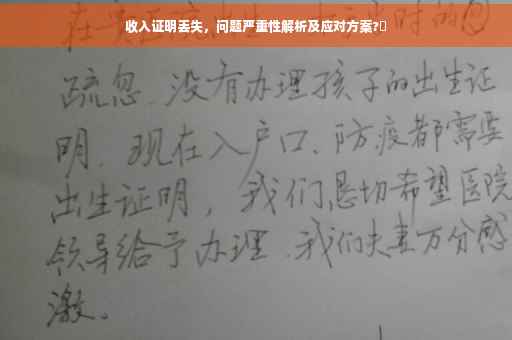 收入证明丢失，问题严重性解析及应对方案?
疏忽、没有办理孩子的出生证
明、现在入户口、防疫都需要
出生证明，我们恳切希望医院
领导给予办理、我们夫妻万分感
激。